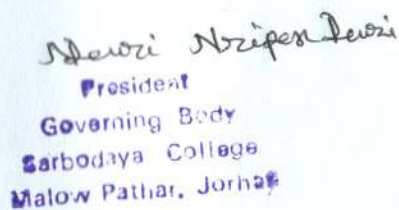 Nripen Dewri
President
Governing Body
Sarbodaya College
Malow Pathar, Jorhat